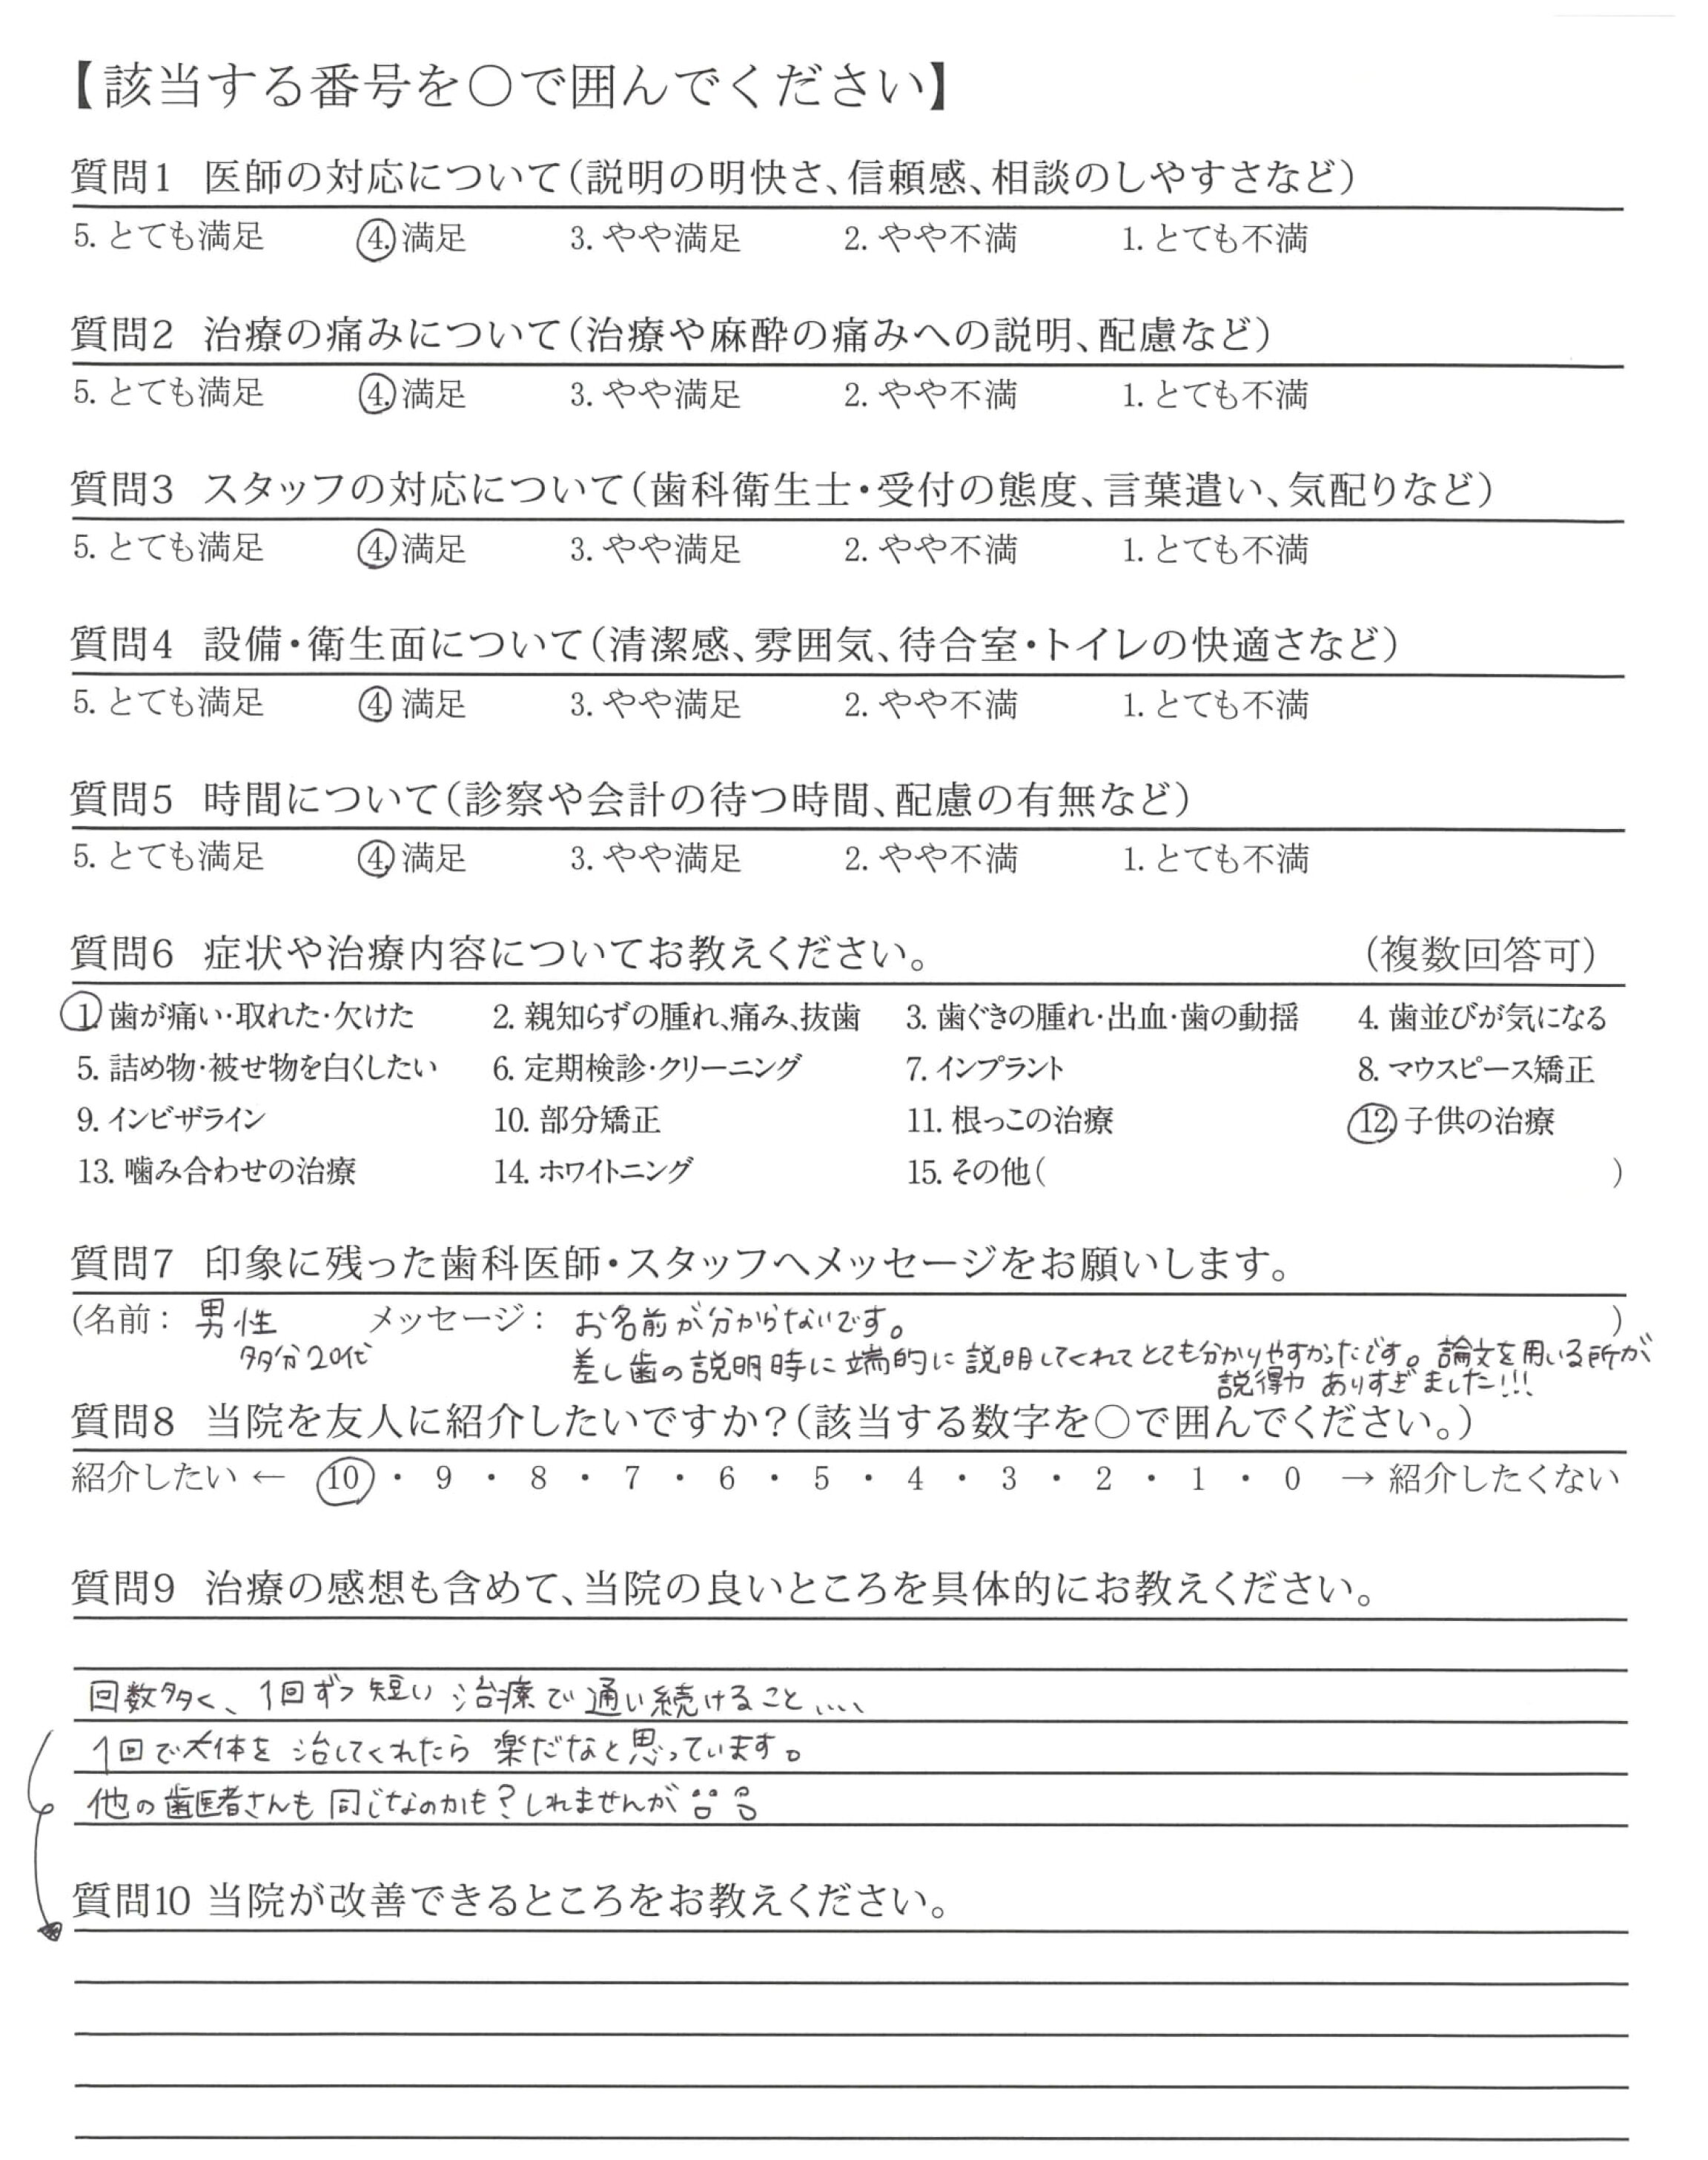 【該当する番号を〇で囲んでください】
質問1 医師の対応について（説明の明快さ、信頼感、相談のしやすさなど）
5. とても満足 4. 満足 3. やや満足 2. やや不満 1. とても不満
質問2 治療の痛みについて（治療や麻酔の痛みへの説明、配慮など）
5. とても満足 4. 満足 3. やや満足 2. やや不満 1. とても不満
質問3 スタッフの対応について（歯科衛生士・受付の態度、言葉遣い、気配りなど）
5. とても満足 4. 満足 3. やや満足 2. やや不満 1. とても不満
質問4 設備・衛生面について（清潔感、雰囲気、待合室・トイレの快適さなど）
5. とても満足 4. 満足 3. やや満足 2. やや不満 1. とても不満
質問5 時間について（診察や会計の待つ時間、配慮の有無など）
5. とても満足 4. 満足 3. やや満足 2. やや不満 1. とても不満
質問6 症状や治療内容についてお教えください。 （複数回答可）
1. 歯が痛い・取れた・欠けた 2. 親知らずの腫れ、痛み、抜歯 3. 歯ぐきの腫れ・出血・歯の動揺 4. 歯並びが気になる
5. 詰め物・被せ物を白くしたい 6. 定期検診・クリーニング 7. インプラント 8. マウスピース矯正
9. インビザライン 10. 部分矯正 11. 根っこの治療 12. 子供の治療
13. 噛み合わせの治療 14. ホワイトニング 15. その他( )
質問7 印象に残った歯科医師・スタッフへメッセージをお願いします。
(名前： 男性 メッセージ： お名前が分からないです。 )
多分20代 差し歯の説明時に端的に説明してくれてとても分かりやすかったです。論文を用いる所が
説得力ありすぎました!!!
質問8 当院を友人に紹介したいですか？（該当する数字を〇で囲んでください。）
紹介したい ← 10 ・ 9 ・ 8 ・ 7 ・ 6 ・ 5 ・ 4 ・ 3 ・ 2 ・ 1 ・ 0 → 紹介したくない
質問9 治療の感想も含めて、当院の良いところを具体的にお教えください。
回数多く、1回ずつ短い治療で通い続けること、、、、
1回で大体を治してくれたら楽だなと思っています。
他の歯医者さんも同じなのかも？しれませんが
質問10 当院が改善できるところをお教えください。